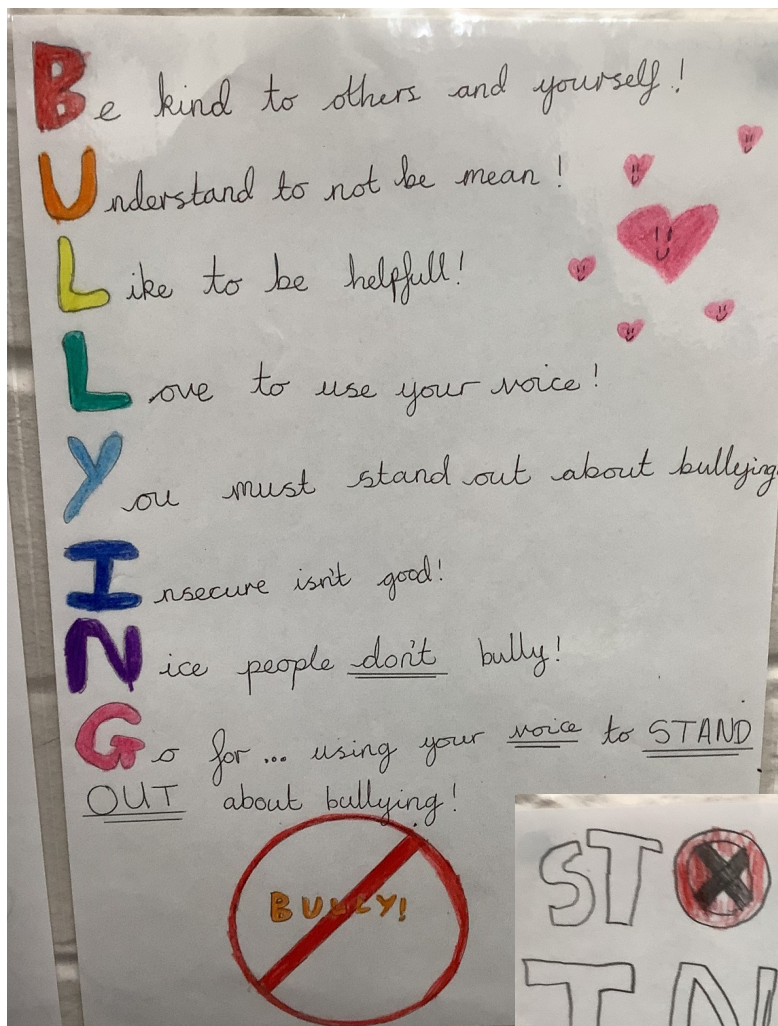 Be kind to others and yourself!
Understand to not be mean!
Like to be helpfull!
Love to use your voice!
You must stand out about bullying
Insecure isn't good!
Nice people don't bully!
Go for... using your voice to STAND
OUT about bullying!
BULLY!
ST
IN